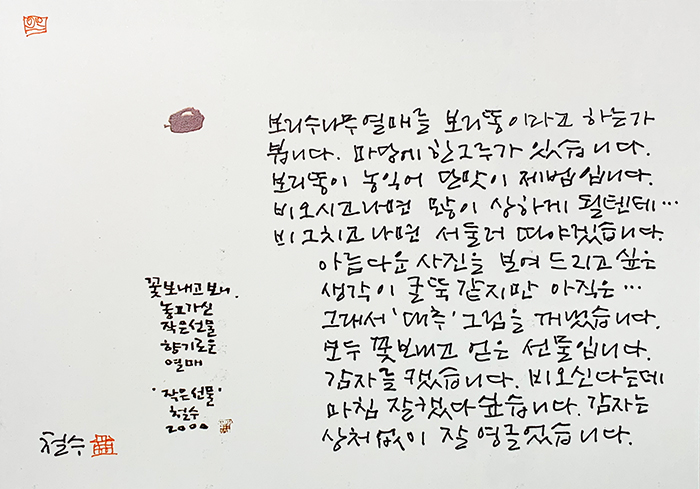 보리수나무열매를 보리똥이라고 하는가
봅니다. 마당에 한그루가 있습니다.
보리똥이 농익어 단맛이 제법입니다.
비오시고나면 많이 상하게 될텐데…
비 그치고 나면 서둘러 따야겠습니다.
아름다운 사진을 보여 드리고 싶은
생각이 굴뚝 같지만 아직은…
그래서 '대추' 그림을 꺼냈습니다.
모두 꽃보내고 얻은 선물입니다.
감자를 캤습니다. 비오신다는데
마침 잘캤다 싶습니다. 감자는
상처 없이 잘 영글었습니다.
꽃보내고 보니,
놓고가신
작은선물
향기로운
열매
'작은선물'
철수
2000
철수